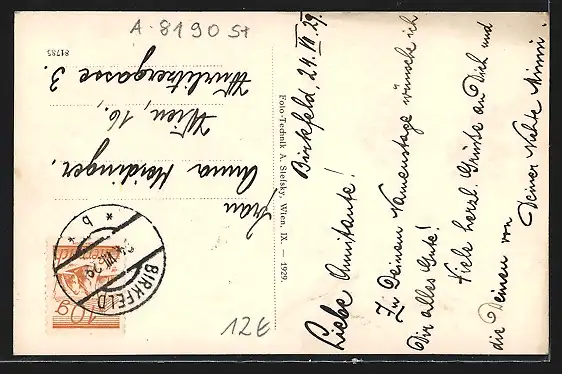 A-8190 St
81785
Birkfeld, 24. VII. 29.
Liebe Annitante!
Zu Deinem Namenstage wünsche ich
Dir alles Gute!
Viele herzl. Grüße an Dich und
die Deinen von
Deiner Nichte Minni.
Foto-Technik A. Stefsky, Wien, IX. — 1929.
Frau
Anna Heidinger,
Wien, 16.,
Wurlitzergasse 3.
BIRKFELD
24. VII. 29
* b *
10g
12E